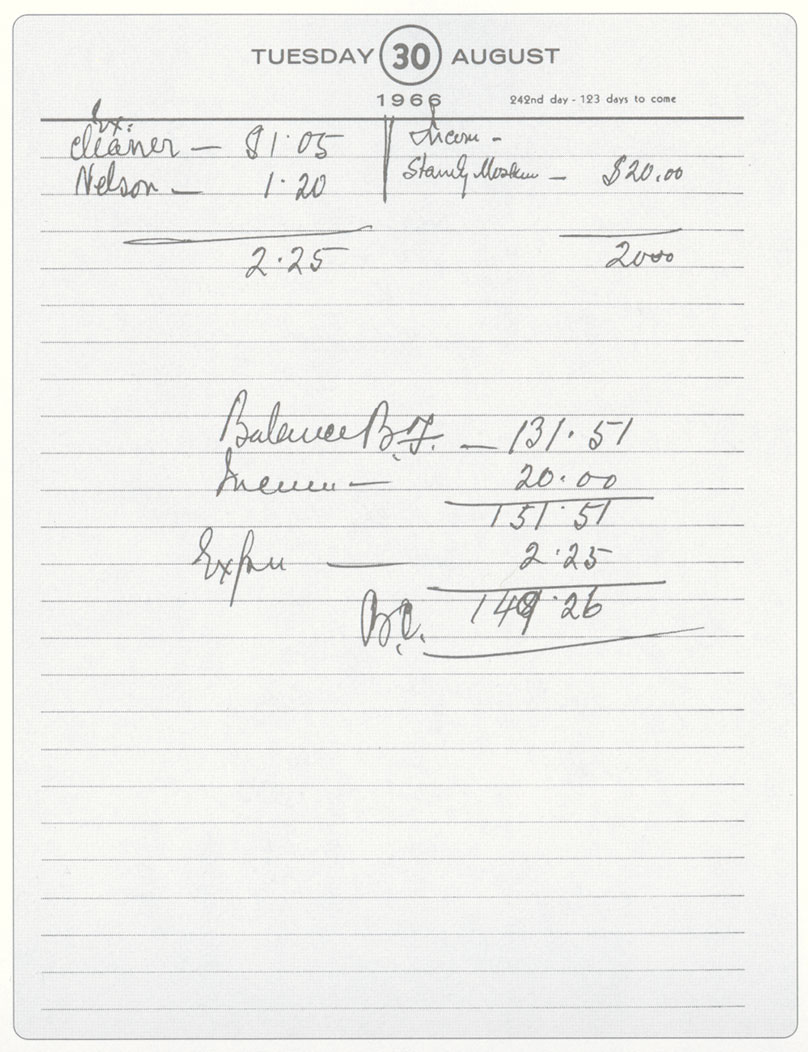 TUESDAY 30 AUGUST
1966
242nd day - 123 days to come
Ex.
cleaner — $1.05
Nelson — 1.20
2.25
Incom -
Stanly — $20.00
2000
Balance B.F. — 131.51
Incom —
20.00
151.51
Expen — 2.25
B.C. 149.26